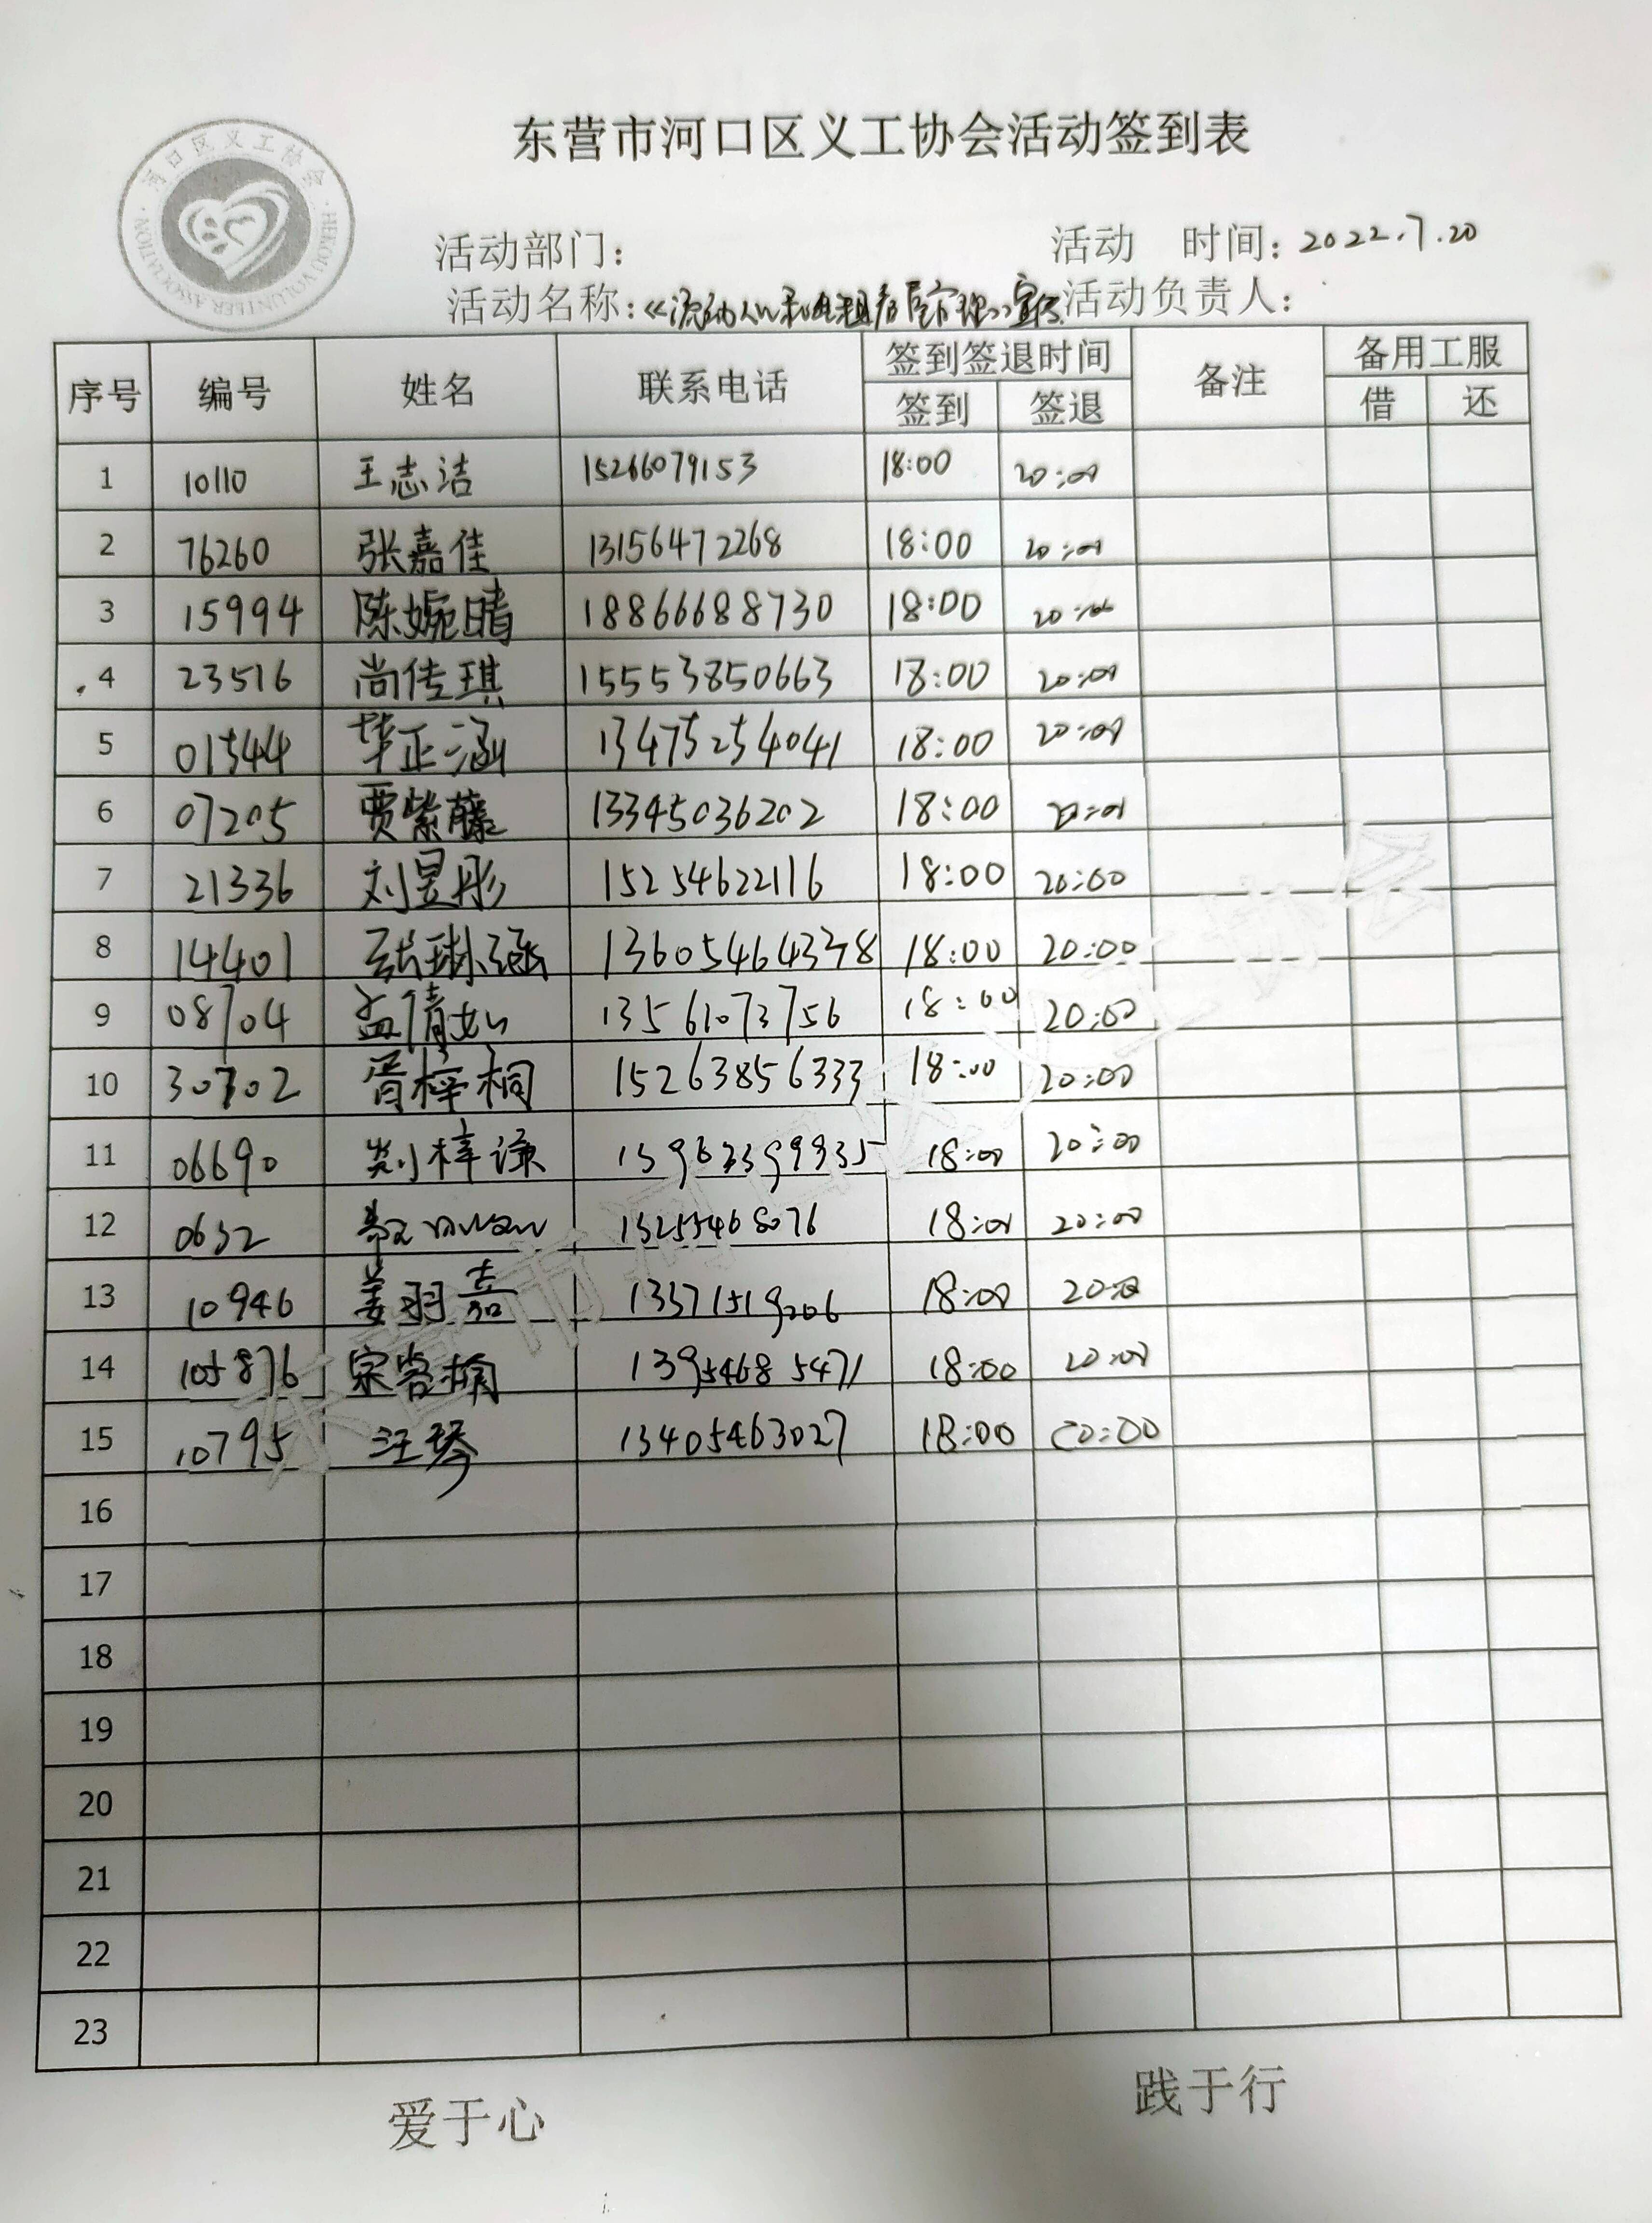 东营市河口区义工协会活动签到表
河口区义工协会
HEKOU VOLUNTEER ASSOCIATION
活动部门： 活动 时间：2022.7.20
活动名称：《流动人口和出租房屋管理》宣传 活动负责人：
序号 编号 姓名 联系电话 签到签退时间 备注 备用工服
签到 签退 借 还
1 10110 王志洁 15266079153 18:00 20:00
2 76260 张嘉佳 13156472268 18:00 20:00
3 15994 陈婉晴 18866688730 18:00 20:00
4 23516 尚传琪 15553850663 18:00 20:00
5 01544 毕正涵 13475254041 18:00 20:00
6 07205 贾紫藤 13345036202 18:00 20:00
7 21336 刘昱彤 15254622116 18:00 20:00
8 14401 张琳涵 13605464378 18:00 20:00
9 08704 孟倩如 13561073756 18:00 20:00
10 30702 胥梓桐 15263856333 18:00 20:00
11 06690 梓谦 18:00 20:00
12 0632 13255468076 18:00 20:00
13 10946 姜羽嘉 13371519206 18:00 20:00
14 105876 宋 13954685471 18:00 20:00
15 10795 汪琴 13405463027 18:00 20:00
16
17
18
19
20
21
22
23
爱于心 践于行
东营市河口区义工协会